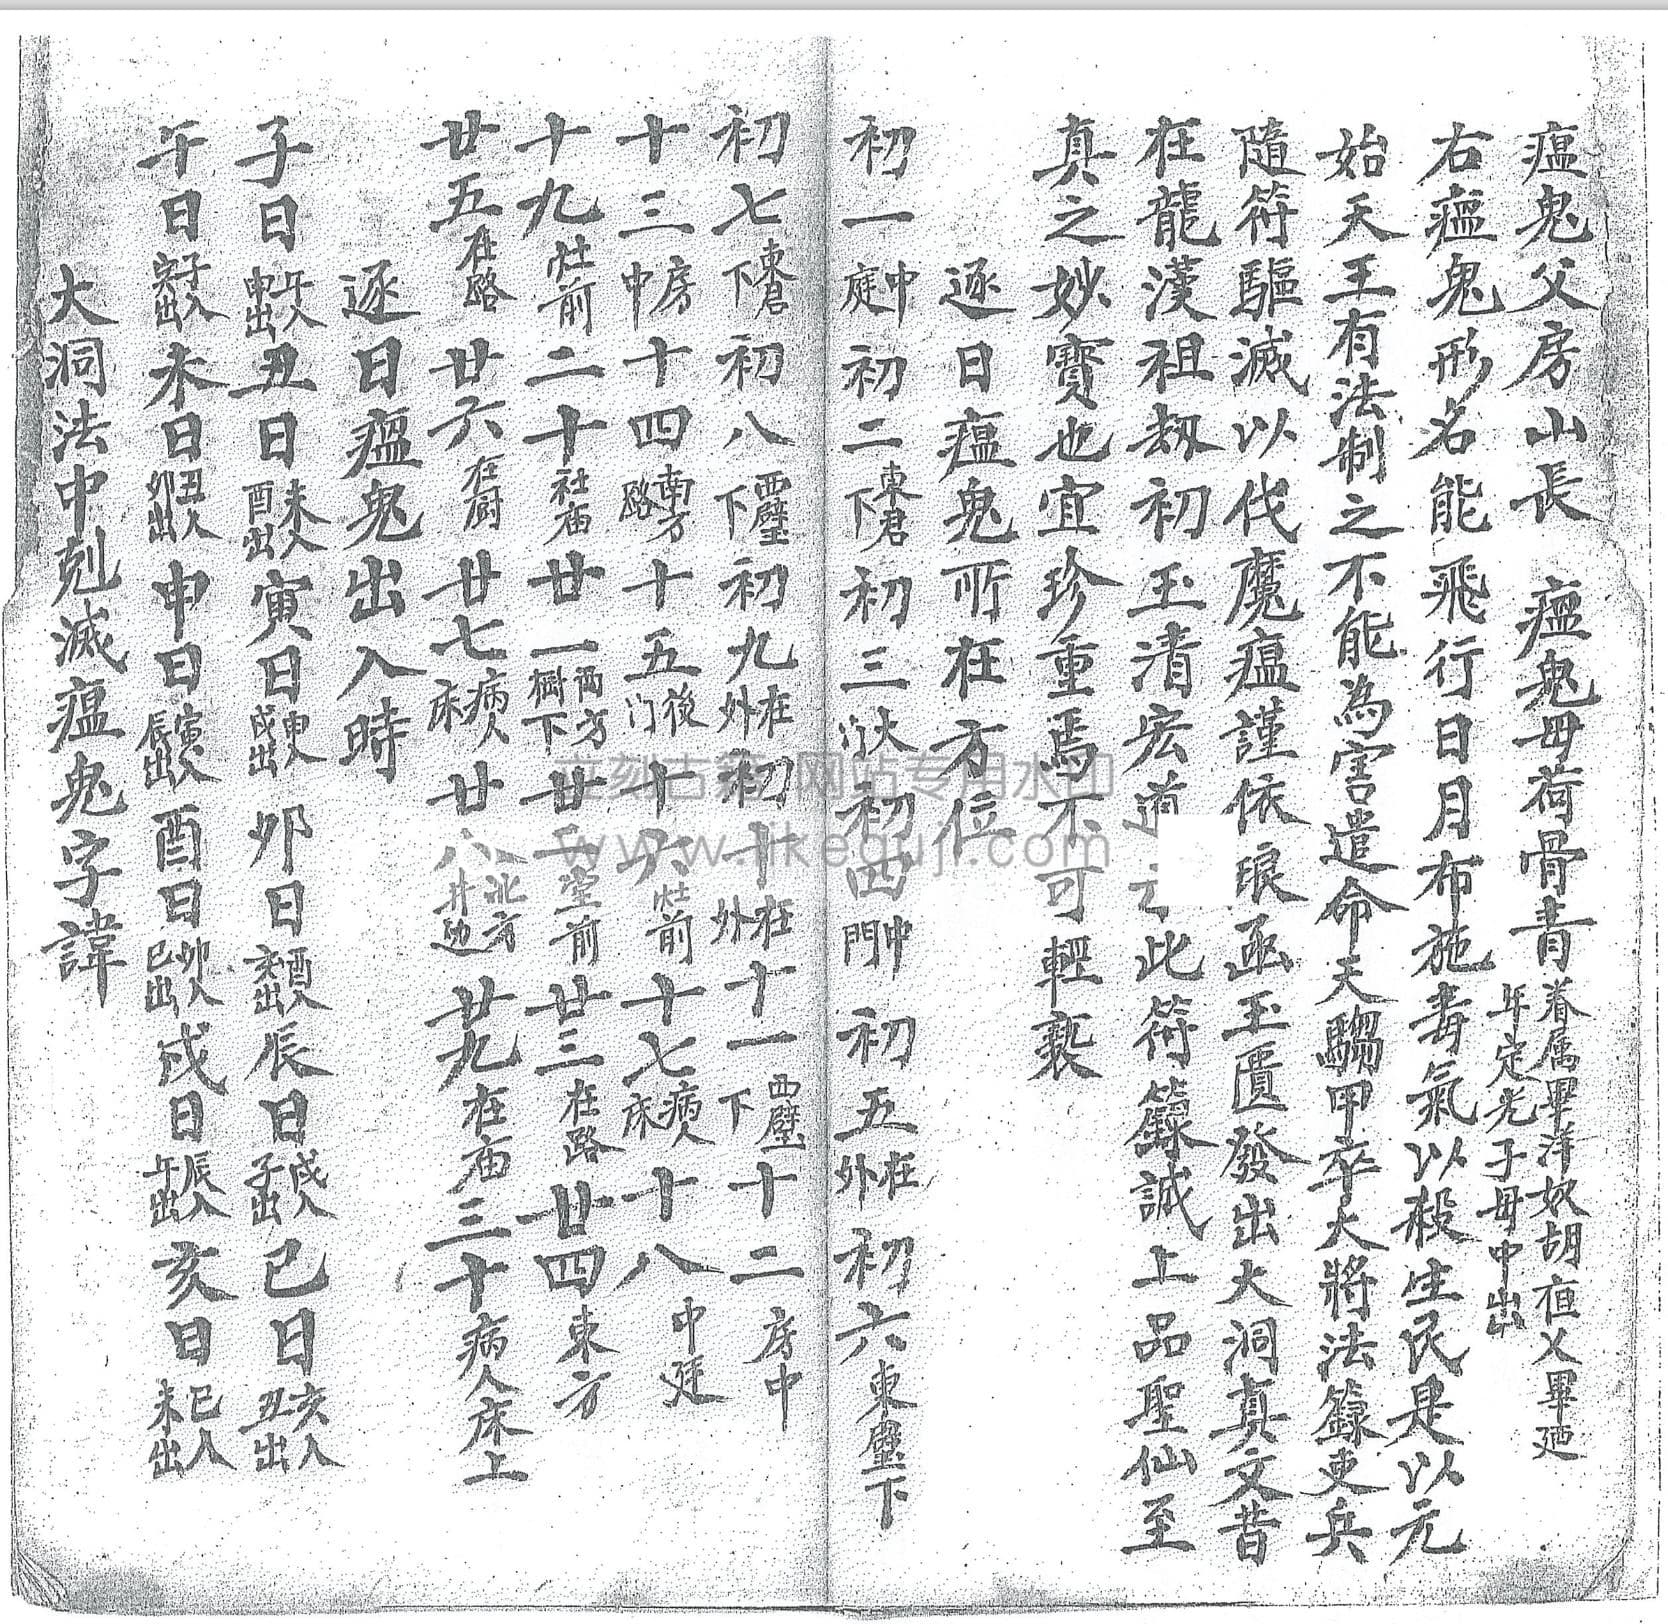 瘟鬼父房山長　瘟鬼母荷骨青　眷属畢洋奴胡夜乂畢廼年定光子母中出
右瘟鬼形名能飛行日月布施毒氣以殺生民是以元
始天王有法制之不能為害遣命天騶甲卒大將法籙吏兵
隨符驅滅以伐魔瘟謹依琅函玉匱發出大洞真文昔
在龍漢祖劫初玉清宏道　此符籙誠上品聖仙至
真之妙寶也宜珍重焉不可輕褻
逐日瘟鬼所在方位
初一中庭初二東君下初三大门初四中門初五在外初六東壁下
初七東君下初八西壁下初九在外初十在外十一西壁下十二房中
十三房中十四南方路十五後门十六灶前十七病人床十八中廷
十九灶前二十社庙廿一西方樹下廿二堂前廿三在路廿四東方
廿五在路廿六在厨廿七病人床廿八北方井边廿九在庙三十病人床上
逐日瘟鬼出入時
子日午入申出丑日未入酉出寅日申入戌出卯日酉入亥出辰日戌入子出巳日亥入丑出
午日子入寅出未日丑入卯出申日寅入辰出酉日卯入巳出戌日辰入午出亥日巳入未出
大洞法中剋滅瘟鬼字諱
立刻古籍 网站专用水印
www.likeguji.com